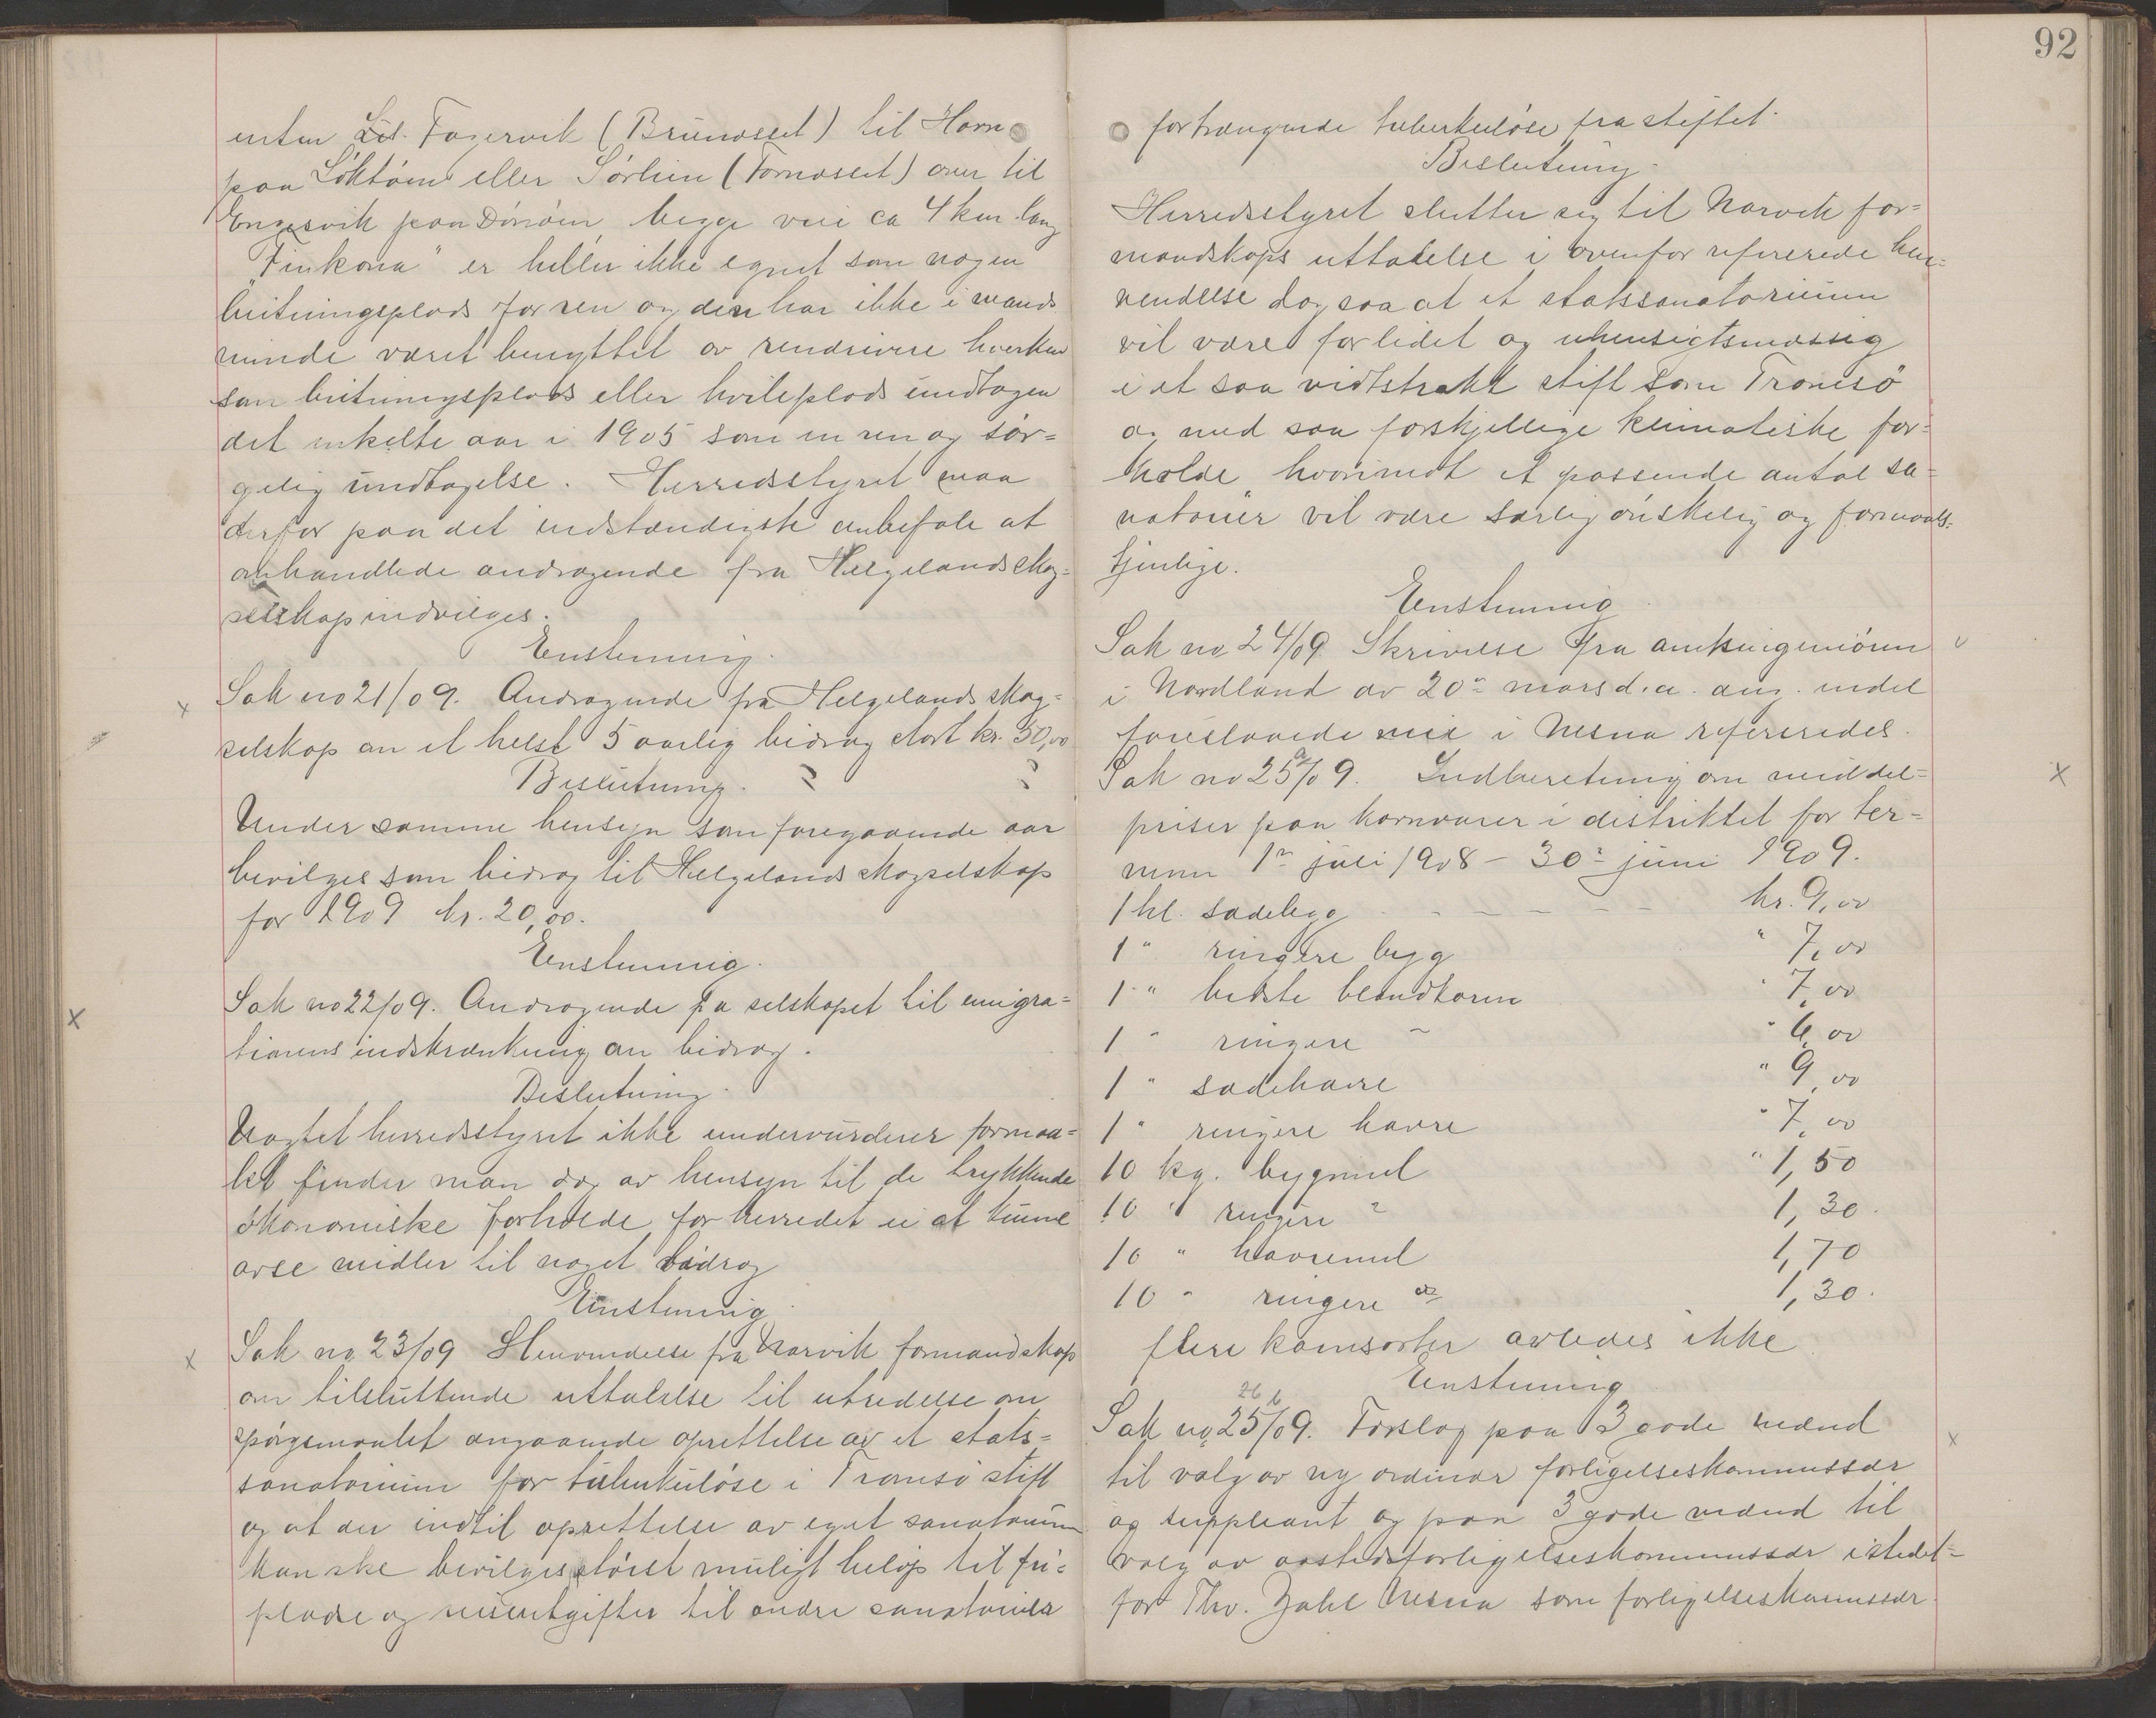 92
enten Lil. Fagervik (Brunosset) til Havn
paa Löktöen eller Sørlien (Tornosset) over til
Engesvik paa Dönöen, begge veie ca 4 km. lang
"Finkona" er heller ikke egnet som nogen
beitningsplads for ren og den har ikke i mands
minde været benyttet av rendrivere hverken
som beitningsplads eller hvileplads undtagen
det enkelte aar i 1905 som en ren og sör=
gelig undtagelse. Herredsstyret maa
derfor paa det indstændigste anbefale at
omhandlede andragende fra Helgelands skog=
selskap indvilges.
Enstemmig.
Sak no 21/09. Andragende fra Helgelands skog=
selskap om et helst 5 aarlig bidrag stort kr. 50,00
Beslutning.
Under samme hensyn som foregaaende aar
bevilges som bidrag til Helgelands skogselskap
for 1909 kr. 20,00.
Enstemmig.
Sak no 22/09. Andragende fra selskapet til emigra=
tionens indskrænkning om bidrag.
Beslutning.
Uagtet herredsstyret ikke undervurderer formaa=
let finder man dog av hensyn til de trykkende
ökonomiske forholde for herredet ei at kunne
avse midler til noget bidrag
Enstemmig.
Sak no 23/09 Henvendelse fra Narvik formandskap
om tilsluttende uttalelse til utredelse om
spörgsmaalet angaaende oprettelse av et stats=
sanatorium for tuberkulöse i Tromsö stift
og at der indtil oprettelse av eget sanatorium
kan ske bevilges störst muligt belöp til fri=
pladse og reiseutgifter til andre sanatorier
for trængende tuberkulöse fra stiftet.
Beslutning.
Herredsstyret slutter sig til Narvik for=
mandskaps uttalelse i ovenfor refererede hen=
vendelse dog saa at et statssanatorium
vil være for lidet og uhensigtsmæssig
i et saa vidtstrakt stift som Tromsö
og med saa forskjellige klimatiske for=
holde, hvorimot et passende antal sa=
natorier vil være særlig önskelig og formaals=
tjenlige.
Enstemmig.
Sak no 24/09. Skrivelse fra amtsingeniören
i Nordland av 20de mars d.a. ang. endel
foreslaaede veie i Nesna refereredes.
Sak no 25a/09. Indberetning om middel=
priser paa kornvarer i distriktet for ter=
minen 1ste juli 1908 - 30te juni 1909.
1 hl. sædebyg - - - - - kr. 9,00
1 " ringere byg " 7,00
1 " bedste blandkorn " 7,00
1 " ringere " " 6,00
1 " sædehavre " 9,00
1 " ringere havre " 7,00
10 kg. bygmel " 1,50
10 " ringere " 1,30.
10 " havremel 1,70
10 " ringere do 1,30.
flere kornsorter avledes ikke
Enstemmig
26
Sak no 25b/09. Forslag paa 3 gode mænd
til valg av ny ordinær forligelseskommissær
og suppleant og paa 3 gode mænd til
valg av aastedsforligelseskommissær istedet=
for Thv. Zahl Nesna som forligelseskommissær.